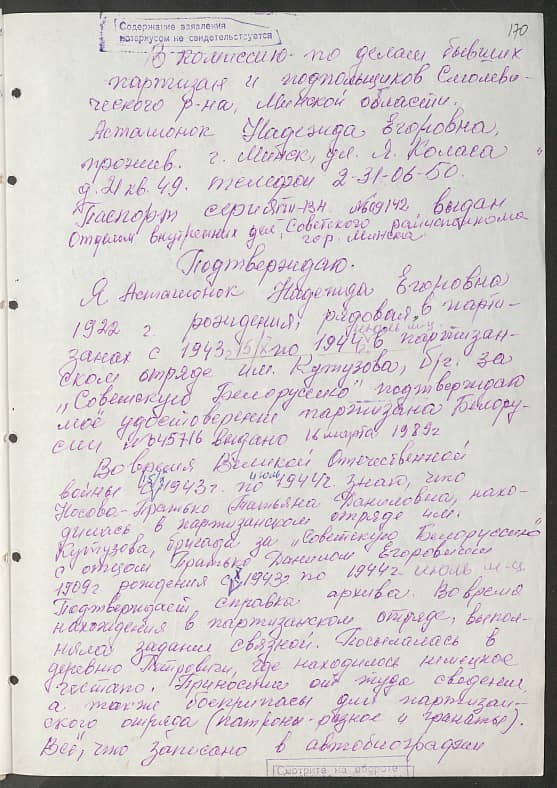 Содержание заявления
нотариусом не свидетельствуется
170
В комиссию по делам бывших
партизан и подпольщиков Смолеви-
ческого р-на, Минской области.
Асташонок Надежида Егоровна,
прожив. г. Минск, ул. Я. Коласа
д. 21 кв. 49. телефон 2-31-06-50.
Паспорт серия №609142 выдан
Отделом внутренних дел, Советского райисполкома
гор. Минска
Подтверждаю.
Я Асташонок Надежида Егоровна
1922 г. рождения, рядовая, в парти-
июль м-ц
занах с 1943 по 1944 в партизан-
ском отряде им. Кутузова, б/г. за
"Советскую Белоруссию" подтверждаю
моё удостоверение партизана Белору-
сии №345716 выдано 16 марта 1989г
Во время Великой Отечественной
июль
войны 1943г. по 1944г. знаю, что
Носова-Пратько Татьяна Даниловна, нахо-
дилась в партизанском отряде им.
Кутузова, бригада за "Советскую Белоруссию"
с отцом Пратько Данилом Егоровичем
1909г. рождения с 1943г по 1944г. июль м-ц.
Подтверждает справка архива. Во время
нахождения в партизанском отряде, выпол-
няла задания связной. Посылалась в
деревню Петровичи, где находилось немецкое
гестапо. Приносила от туда сведения,
а также боеприпасы для партизан-
ского отряда (патроны разное и гранаты).
Всё, что записано в автобиографии
Смотрите на обороте